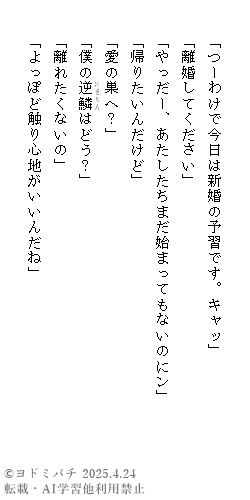 「つーわけで今日は新婚の予習です。キャッ」
「離婚してください」
「やっだー、あたしたちまだ始まってもないのにン」
「帰りたいんだけど」
「愛の巣へ？」
「僕の逆鱗はどう？」
「離れたくないの」
「よっぽど触り心地がいいんだね」
©ヨドミバチ 2025.4.24
転載・AI学習他利用禁止